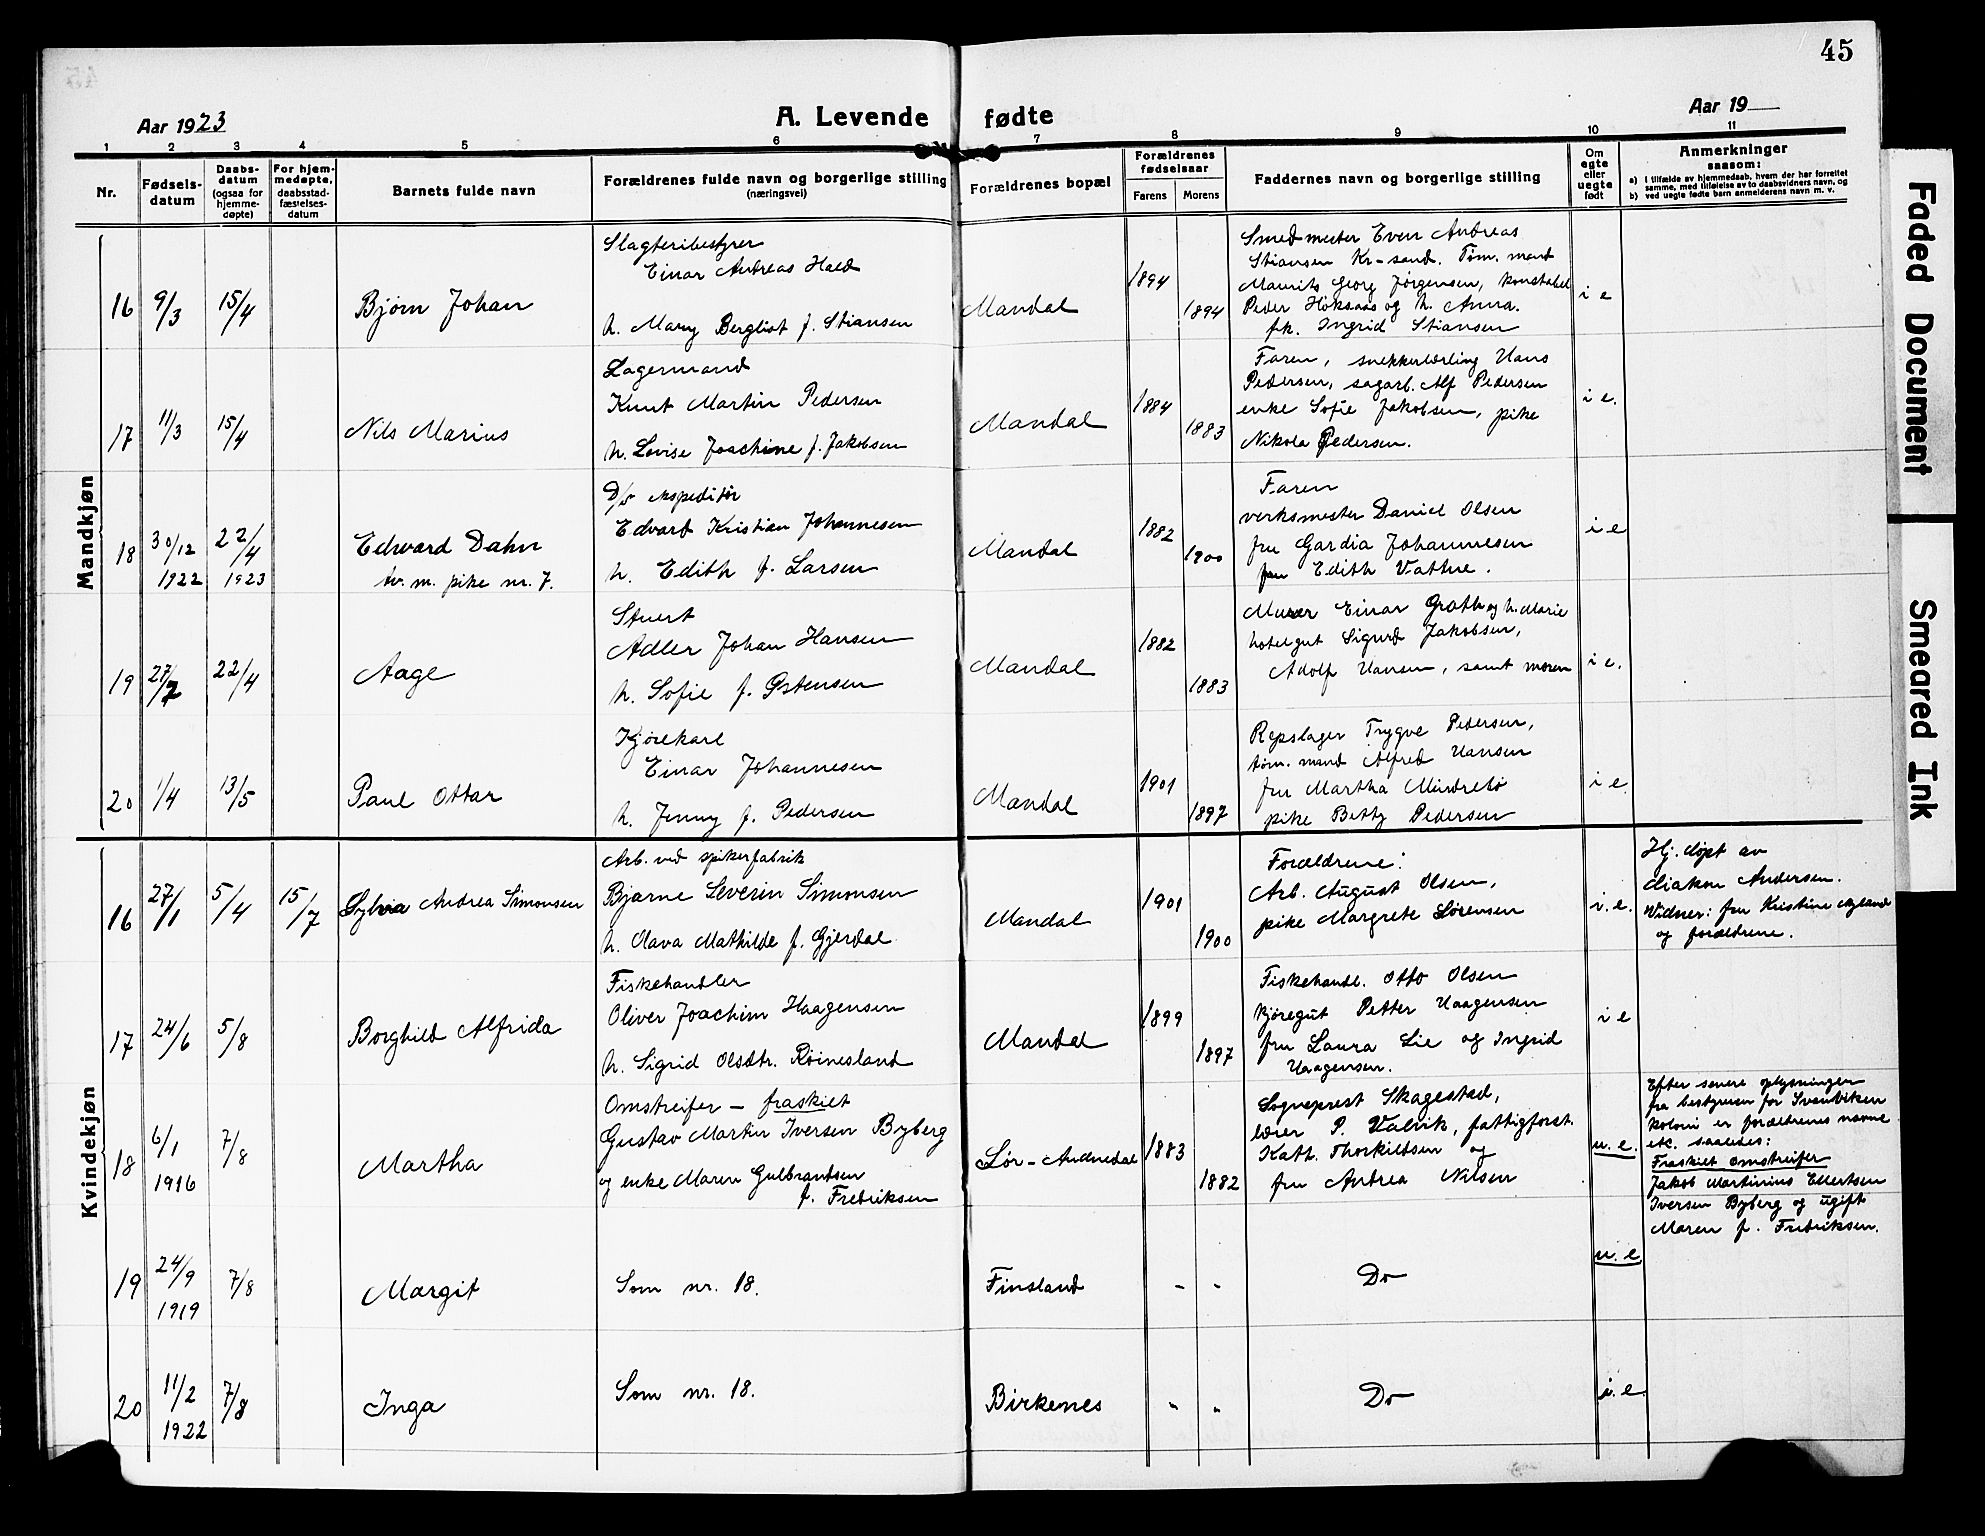 45
Aar 1923
A. Levende fødte
Aar 19
1 2 3 4 5 6 7 8 9 10 11
Nr.
Fødsels-
datum
Daabs-
datum
(ogsaa for
hjemme-
døpte)
For hjem-
medøpte,
daabsstad-
fæstelses-
datum
Barnets fulde navn
Forældrenes fulde navn og borgerlige stilling
(næringsvei)
Forældrenes bopæl
Forældrenes
fødselsaar
Farens Morens
Faddernes navn og borgerlige stilling
Om
egte
eller
uegte
født
Anmerkninger
saasom:
a) I tilfælde av hjemmedaab, hvem der har forrettet
samme, med tilføielse av to daabsvidners navn, og
b) ved uegte fødte barn anmelderens navn m. v.
Mandkjøn
16 9/3 15/4 Bjørn Johan
Slagteribestyrer
Einar Andreas Hald
h. Mary Bergliot f. Stiansen
Mandal 1894 1894
Smedmester Even Andreas
Stiansen Kr-sand. Tøm. mand
Maurits Georg Jørgensen, konstabel
Peder Høksaas og h. Anna.
frk. Ingrid Stiansen
i e
17 11/3 15/4 Nils Marius
Lagermand
Knut Martin Pedersen
h. Lovise Joachine f. Jakobsen
Mandal 1884 1883
Faren, snekkerlærling Hans
Pedersen, sagarb. Alf Pedersen
enke Sofie Jakobsen, pike
Nikola Pedersen.
i e.
18 30/12 1922 22/4 1923 Edward Dahn
tv. m. pike nr. 7.
D/s ekspeditør
Edvard Kristian Johannesen
h. Edith f. Larsen
Mandal 1882 1900
Faren
verksmester Daniel Olsen
fru Gardia Johannesen
fru Edith Vatne.
i e
19 27/2 22/4 Aage
Stuert
Adler Johan Hansen
h. Sofie f. Østensen
Mandal 1882 1883
Murer Einar Groth og h. Marie
hotelgut Sigurd Jakobsen,
Adolf Hansen, samt moren
i e.
20 1/4 13/5 Paul Ottar
Kjørekarl
Einar Johannesen
h. Jenny f. Pedersen
Mandal 1901 1897
Repslager Trygve Pedersen,
tøm. mand Alfred Hansen
fru Martha Mindrebø
pike Betty Pedersen
i e.
Kvindekjøn
16 27/1 5/4 15/7 Sylvia Andrea Simonsen
Arb. ved spikerfabrik
Bjarne Severin Simonsen
h. Olava Mathilde f. Gjerdal
Mandal 1901 1900
Forældrene:
Arb. August Olsen,
pike Margrete Sørensen
i. e.
Hj. døpt av
diakon Andersen.
Vidner: fru Kristine Nyland
og forældrene.
17 24/6 5/8 Borghild Alfrida
Fiskehandler
Oliver Joachim Haagensen
h. Sigrid Olsdtr. Røinesland
Mandal 1899 1897
Fiskehandl. Otto Olsen
kjøregut Petter Haagensen
fru Laura Lie og Ingrid
Haagensen.
i e
18 6/1 1916 7/8 Martha
Omstreifer – fraskilt
Gustav Martin Iversen Byberg
og enke Maren Gulbrandsen
f. Fredriksen
Sør-Audnedal 1883 1882
Sogneprest Skagestad,
lærer P. Valvik, fattigforst.
Kath. Thorkildsen og
fru Andrea Nilsen
u. e.
Efter senere oplysninger
fra bestyreren for Svanviken
koloni er forældrenes navne
etc. saaledes:
Fraskilt omstreifer
Jakob Martinius Ellertsen
Iversen Byberg og ugift
Maren f. Fredriksen.
19 24/9 1919 7/8 Margit
Som nr. 18.
Finsland - -
Do
u. e
20 11/2 1922 7/8 Inga
Som nr. 18.
Birkenes " "
Do
i. e
Faded Document
Smeared Ink